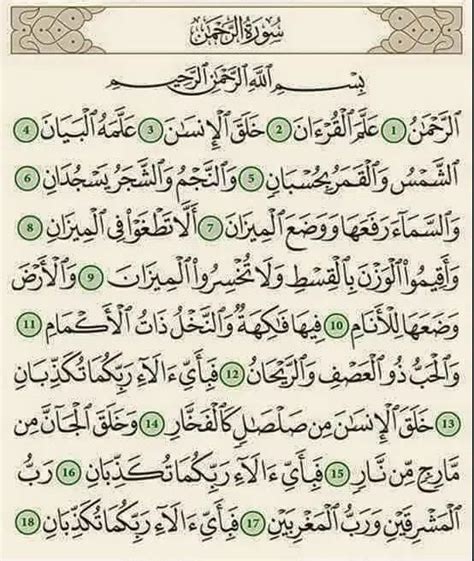 سُورَةُ الرَّحْمَٰن
بِسْمِ اللَّهِ الرَّحْمَٰنِ الرَّحِيمِ
الرَّحْمَٰنُ ١ عَلَّمَ الْقُرْءَانَ ٢ خَلَقَ الْإِنسَٰنَ ٣ عَلَّمَهُ الْبَيَانَ ٤
الشَّمْسُ وَالْقَمَرُ بِحُسْبَانٍ ٥ وَالنَّجْمُ وَالشَّجَرُ يَسْجُدَانِ ٦
وَالسَّمَاءَ رَفَعَهَا وَوَضَعَ الْمِيزَانَ ٧ أَلَّا تَطْغَوْا فِي الْمِيزَانِ ٨
وَأَقِيمُوا الْوَزْنَ بِالْقِسْطِ وَلَا تُخْسِرُوا الْمِيزَانَ ٩ وَالْأَرْضَ
وَضَعَهَا لِلْأَنَامِ ١٠ فِيهَا فَٰكِهَةٌ وَالنَّخْلُ ذَاتُ الْأَكْمَامِ ١١
وَالْحَبُّ ذُو الْعَصْفِ وَالرَّيْحَانُ ١٢ فَبِأَيِّ ءَالَاءِ رَبِّكُمَا تُكَذِّبَانِ
١٣ خَلَقَ الْإِنسَٰنَ مِن صَلْصَٰلٍ كَالْفَخَّارِ ١٤ وَخَلَقَ الْجَانَّ مِن
مَّارِجٍ مِّن نَّارٍ ١٥ فَبِأَيِّ ءَالَاءِ رَبِّكُمَا تُكَذِّبَانِ ١٦ رَبُّ
الْمَشْرِقَيْنِ وَرَبُّ الْمَغْرِبَيْنِ ١٧ فَبِأَيِّ ءَالَاءِ رَبِّكُمَا تُكَذِّبَانِ ١٨